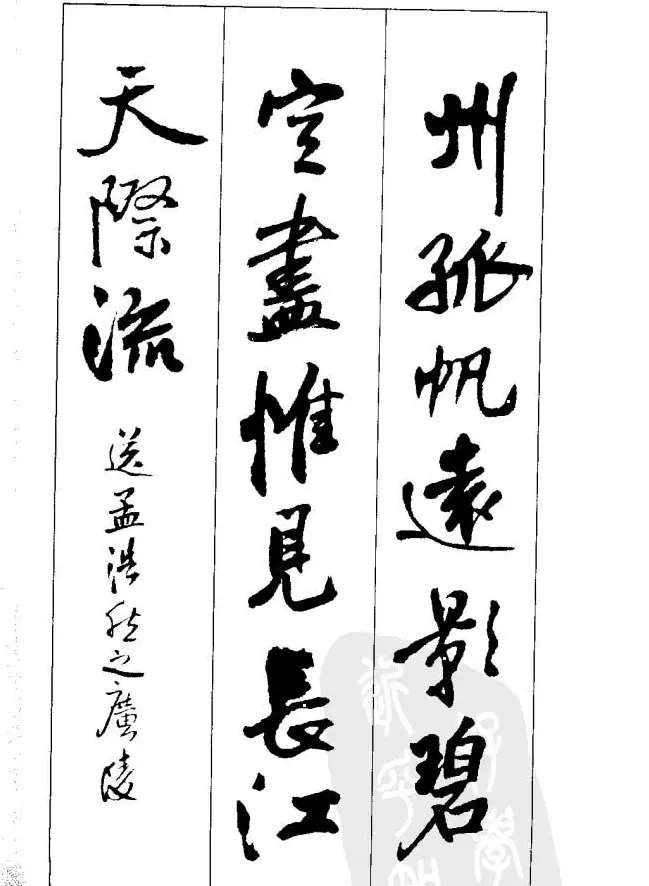 州孤帆遠影碧
空盡惟見長江
天際流
送孟浩然之廣陵